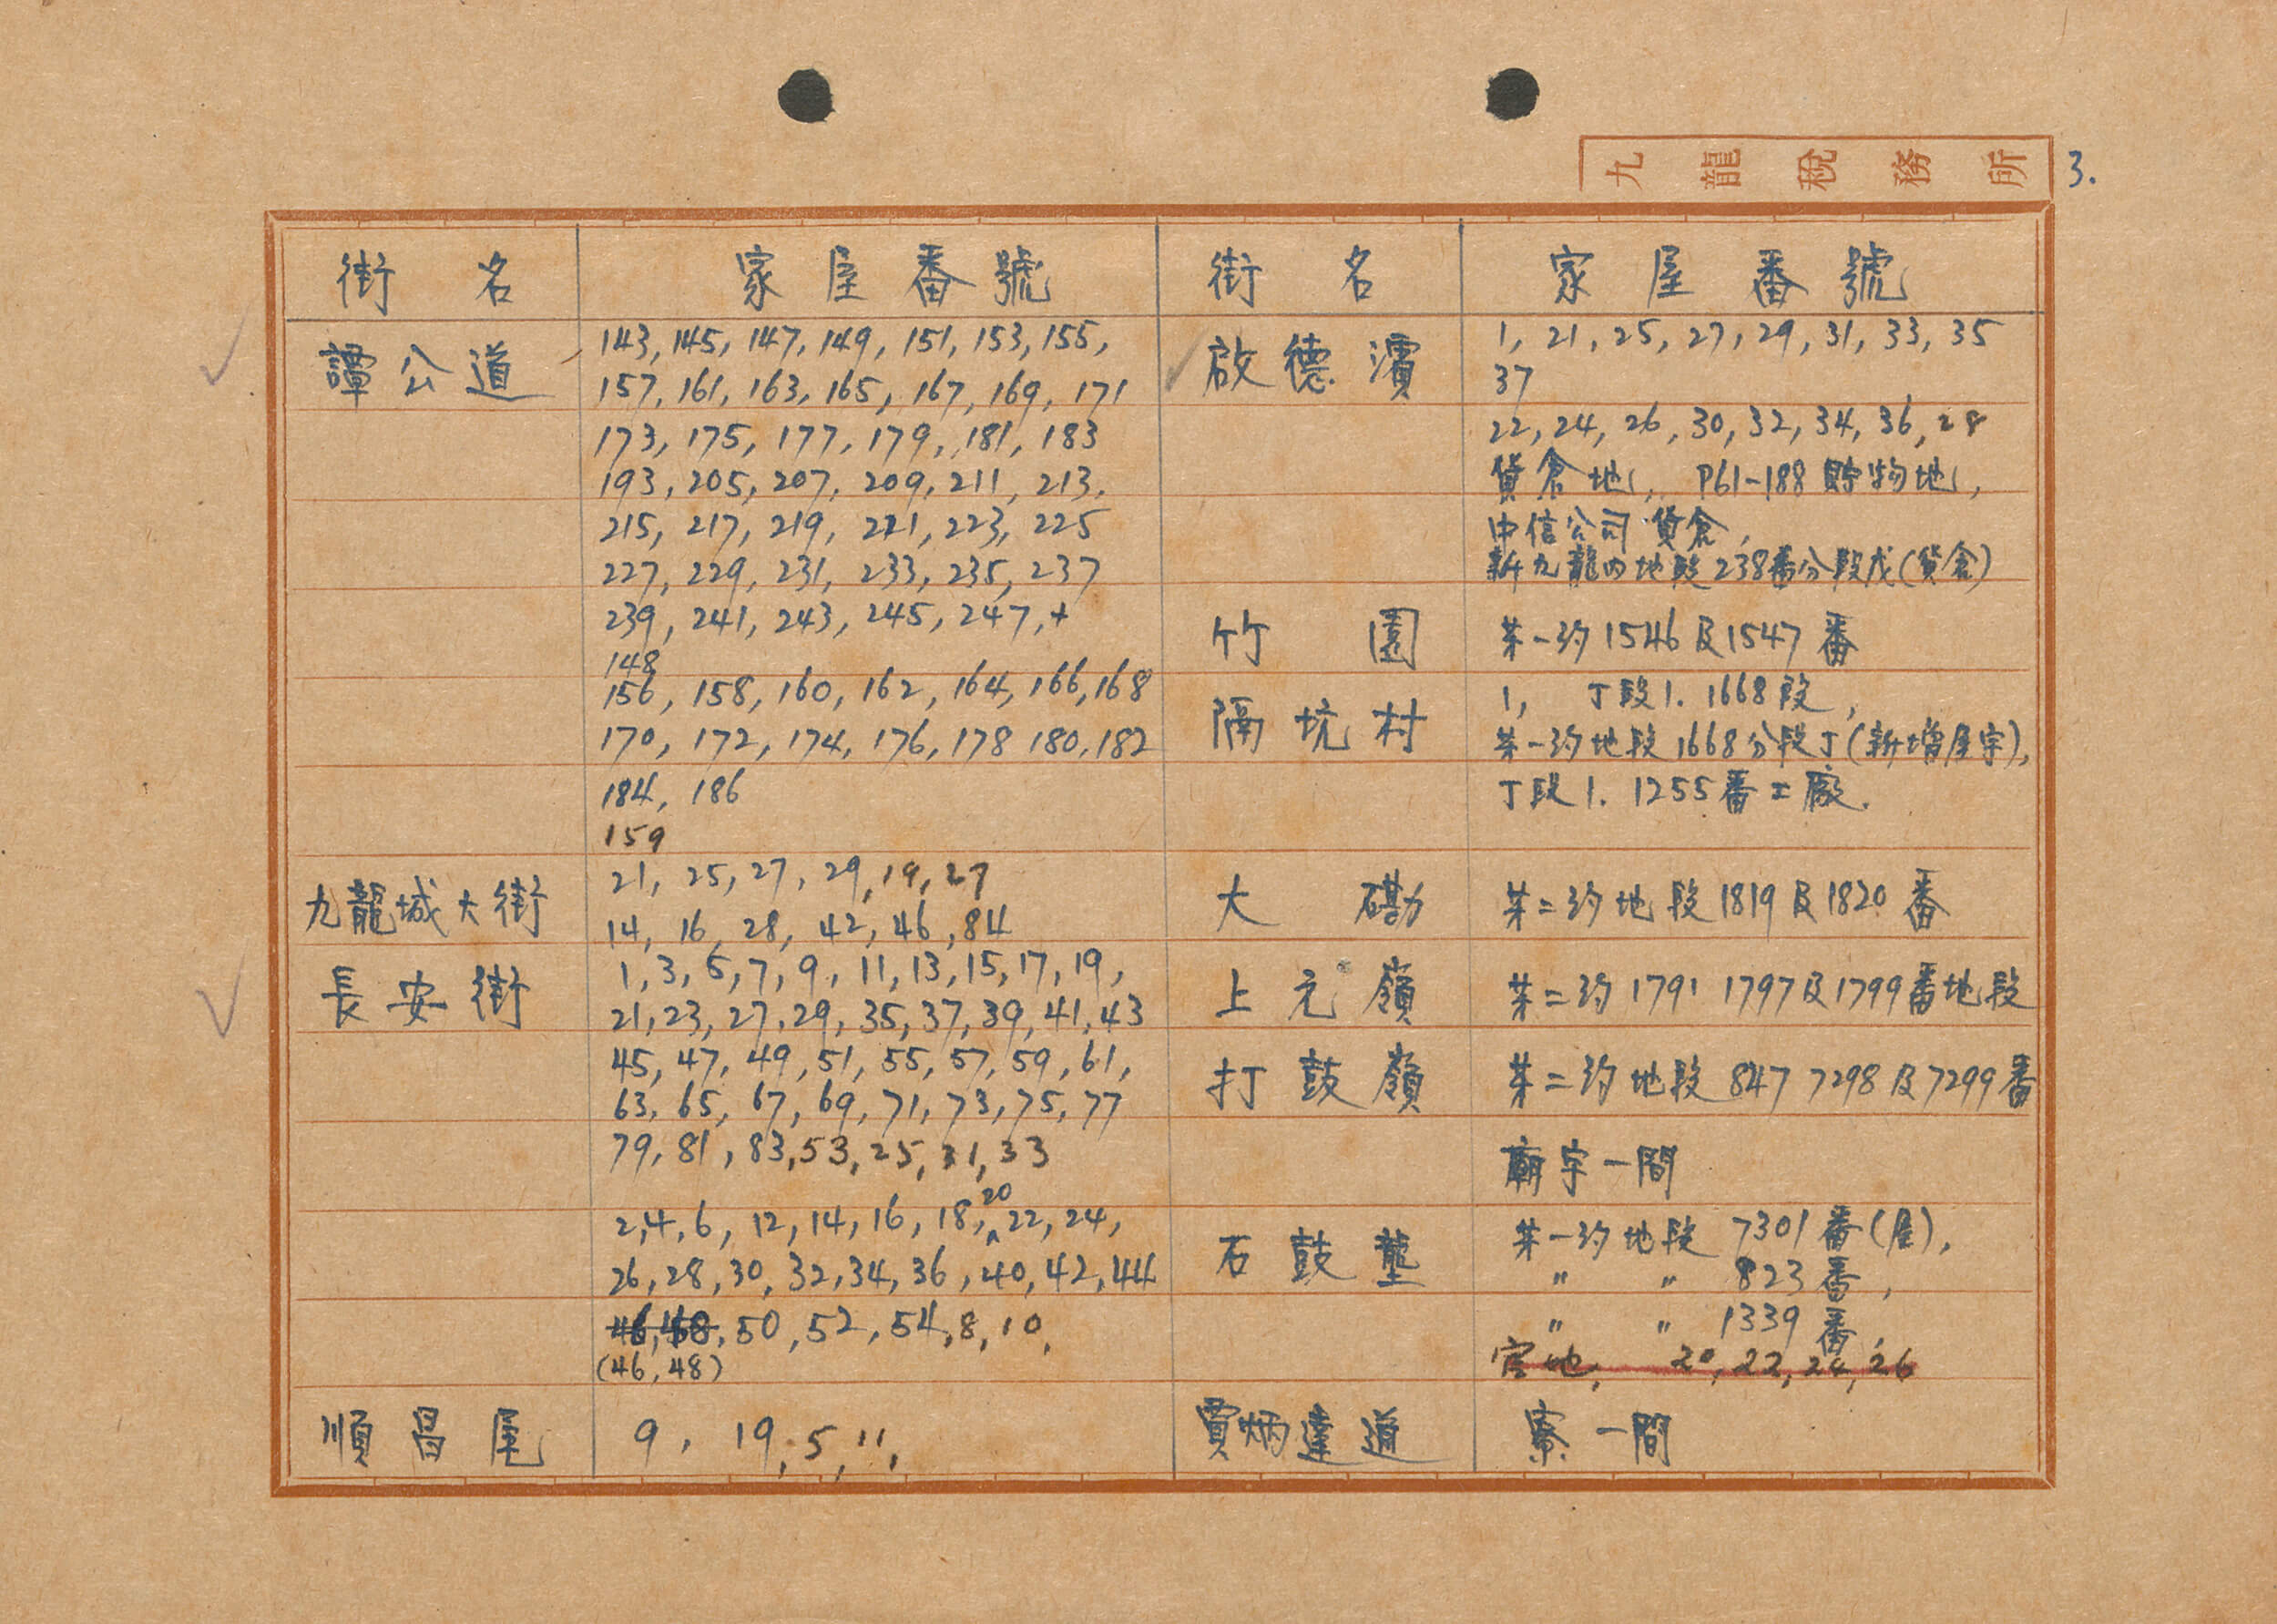 九龍稅務所
3.
街名 家屋番號
譚公道
143, 145, 147, 149, 151, 153, 155,
157, 161, 163, 165, 167, 169, 171
173, 175, 177, 179, 181, 183
193, 205, 207, 209, 211, 213,
215, 217, 219, 221, 223, 225
227, 229, 231, 233, 235, 237
239, 241, 243, 245, 247, +
148
156, 158, 160, 162, 164, 166, 168
170, 172, 174, 176, 178 180, 182
184, 186
159
九龍城大街
21, 25, 27, 29, 19, 27
14, 16, 28, 42, 46, 84
長安街
1, 3, 5, 7, 9, 11, 13, 15, 17, 19,
21, 23, 27, 29, 35, 37, 39, 41, 43
45, 47, 49, 51, 55, 57, 59, 61,
63, 65, 67, 69, 71, 73, 75, 77
79, 81, 83, 53, 25, 31, 33
2, 4, 6, 12, 14, 16, 18, 20, 22, 24,
26, 28, 30, 32, 34, 36, 40, 42, 44
46, 48, 50, 52, 54, 8, 10,
(46, 48)
順昌尾
9, 19, 5, 11,
街名 家屋番號
啟德濱
1, 21, 25, 27, 29, 31, 33, 35
37
22, 24, 26, 30, 32, 34, 36, 28
貨倉地, P61-188 貯物地,
中信公司貨倉,
新九龍內地段238番分段戊(貨倉)
竹園
苐一約1546及1547番
隔坑村
1, 丁段1. 1668段,
苐一約地段1668分段丁(新增屋宇),
丁段1. 1255番工廠.
大磡
苐二約地段1819及1820番
上元嶺
苐二約1791 1797及1799番地段
打鼓嶺
苐二約地段847 7298及7299番
廟宇一間
石鼓壟
苐一約地段 7301番(屋),
〃 〃 823番,
〃 〃 1339番,
官地, 20, 22, 24, 26
賈炳達道
寮一間